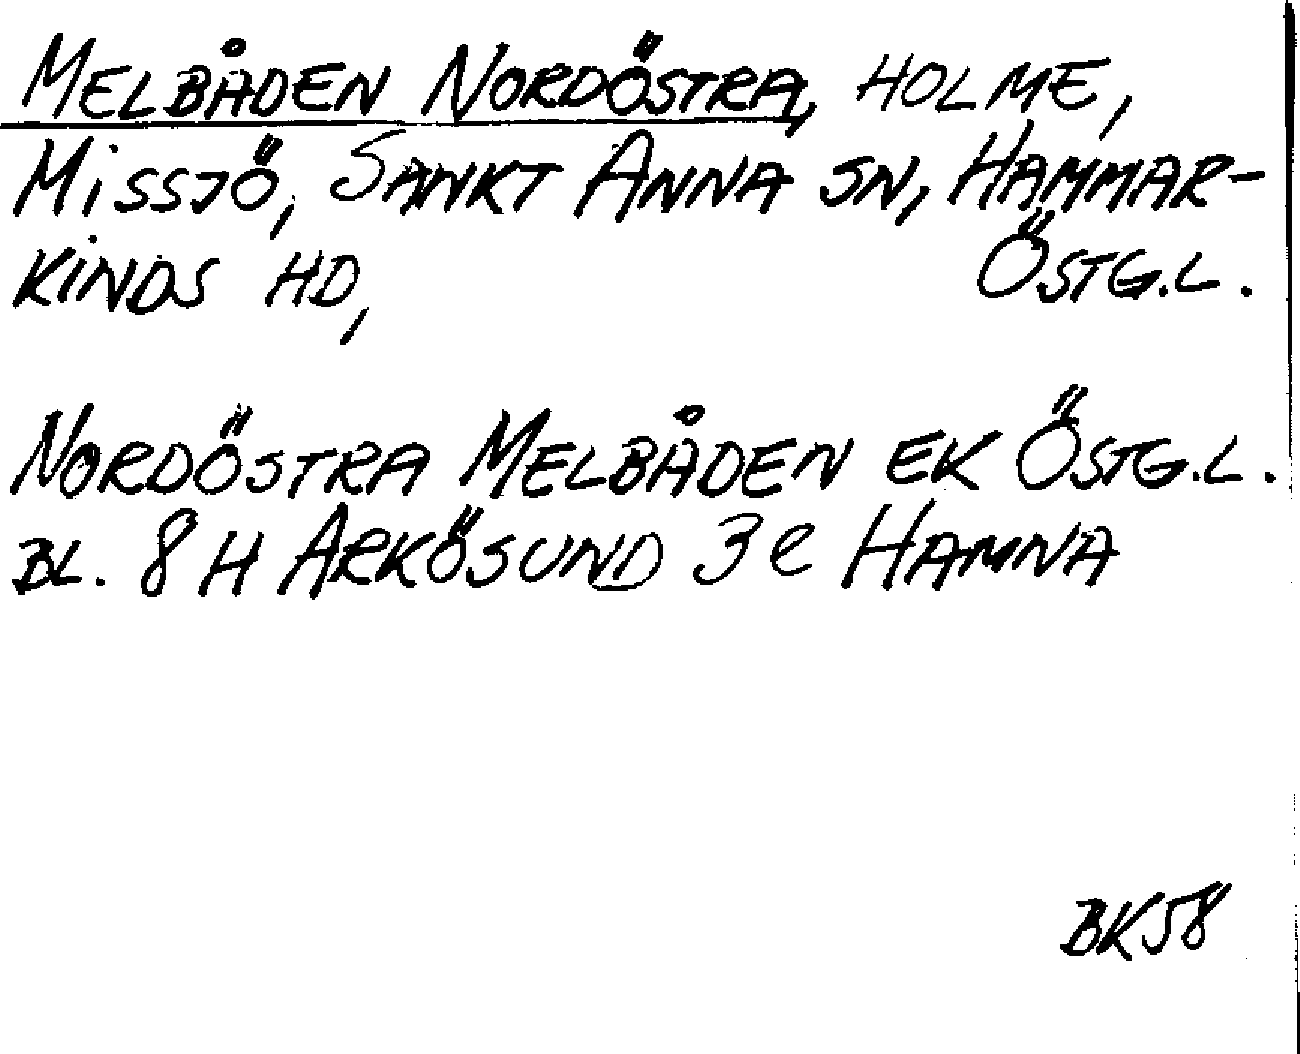 MELBÅDEN NORDÖSTRA, HOLME,
MISSJÖ, SANKT ANNA SN, HAMMAR-
KINDS HD, ÖSTG.L.
NORDÖSTRA MELBÅDEN EK ÖSTG.L.
BL. 8 H ARKÖSUND 3 e HAMNA
BK58